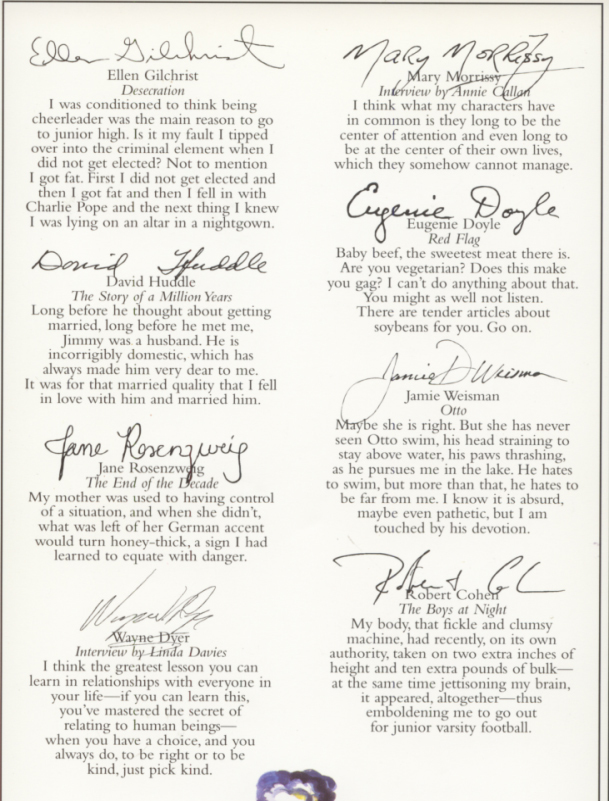 Ellen Gilchrist
Ellen Gilchrist
Desecration
I was conditioned to think being
cheerleader was the main reason to go
to junior high. Is it my fault I tipped
over into the criminal element when I
did not get elected? Not to mention
I got fat. First I did not get elected and
then I got fat and then I fell in with
Charlie Pope and the next thing I knew
I was lying on an altar in a nightgown.
David Huddle
David Huddle
The Story of a Million Years
Long before he thought about getting
married, long before he met me,
Jimmy was a husband. He is
incorrigibly domestic, which has
always made him very dear to me.
It was for that married quality that I fell
in love with him and married him.
Jane Rosenzweig
Jane Rosenzweig
The End of the Decade
My mother was used to having control
of a situation, and when she didn't,
what was left of her German accent
would turn honey-thick, a sign I had
learned to equate with danger.
Wayne Dyer
Wayne Dyer
Interview by Linda Davies
I think the greatest lesson you can
learn in relationships with everyone in
your life—if you can learn this,
you've mastered the secret of
relating to human beings—
when you have a choice, and you
always do, to be right or to be
kind, just pick kind.
Mary Morrissy
Mary Morrissy
Interview by Annie Callan
I think what my characters have
in common is they long to be the
center of attention and even long to
be at the center of their own lives,
which they somehow cannot manage.
Eugenie Doyle
Eugenie Doyle
Red Flag
Baby beef, the sweetest meat there is.
Are you vegetarian? Does this make
you gag? I can't do anything about that.
You might as well not listen.
There are tender articles about
soybeans for you. Go on.
Jamie D Weisman
Jamie Weisman
Otto
Maybe she is right. But she has never
seen Otto swim, his head straining to
stay above water, his paws thrashing,
as he pursues me in the lake. He hates
to swim, but more than that, he hates to
be far from me. I know it is absurd,
maybe even pathetic, but I am
touched by his devotion.
Robert Cohen
The Boys at Night
My body, that fickle and clumsy
machine, had recently, on its own
authority, taken on two extra inches of
height and ten extra pounds of bulk—
at the same time jettisoning my brain,
it appeared, altogether—thus
emboldening me to go out
for junior varsity football.